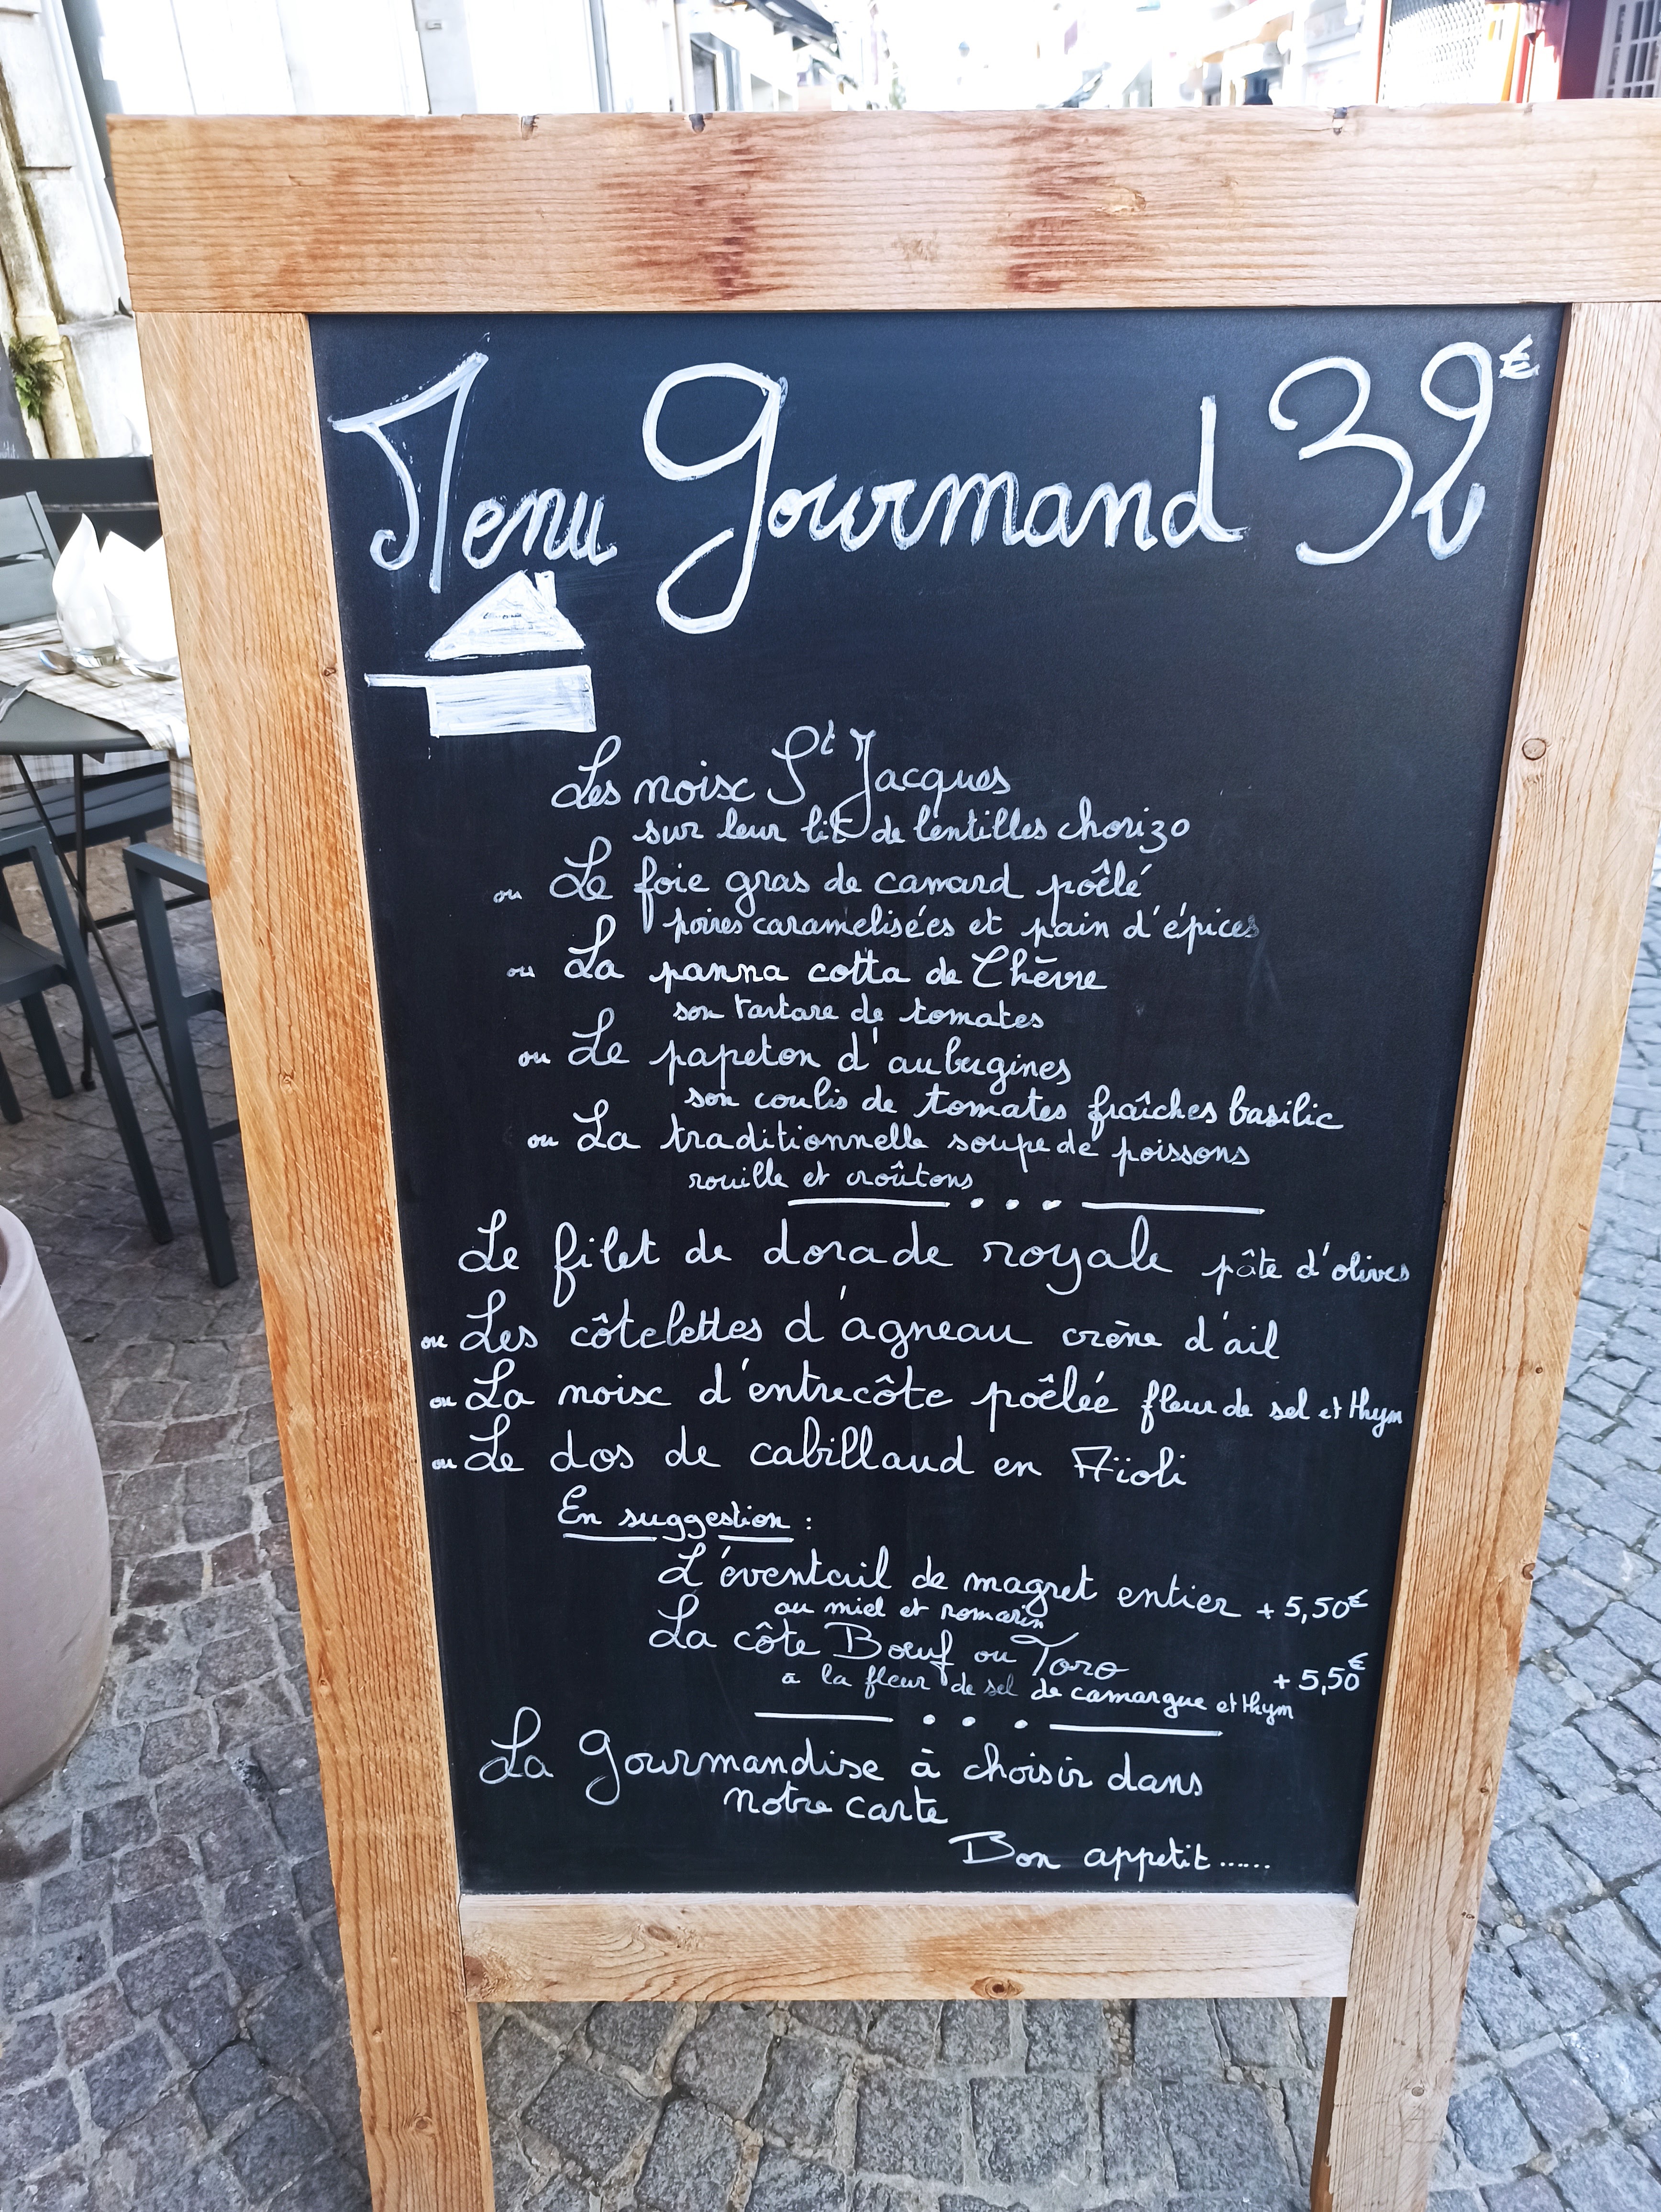 Menu Gourmand 32€
Les noix St Jacques
sur leur lit de lentilles chorizo
ou Le foie gras de canard poêlé
poires caramelisées et pain d'épices
ou La panna cotta de Chèvre
son tartare de tomates
ou Le papeton d'aubergines
son coulis de tomates fraîches basilic
ou La traditionnelle soupe de poissons
rouille et croûtons
Le filet de dorade royale pâte d'olives
ou Les côtelettes d'agneau crème d'ail
ou La noix d'entrecôte poêlée fleur de sel et thym
ou Le dos de cabillaud en Aïoli
En suggestion :
L'éventail de magret entier + 5,50€
au miel et romarin
La côte Boeuf ou Toro + 5,50€
à la fleur de sel de camargue et thym
La Gourmandise à choisir dans
notre carte
Bon appetit......